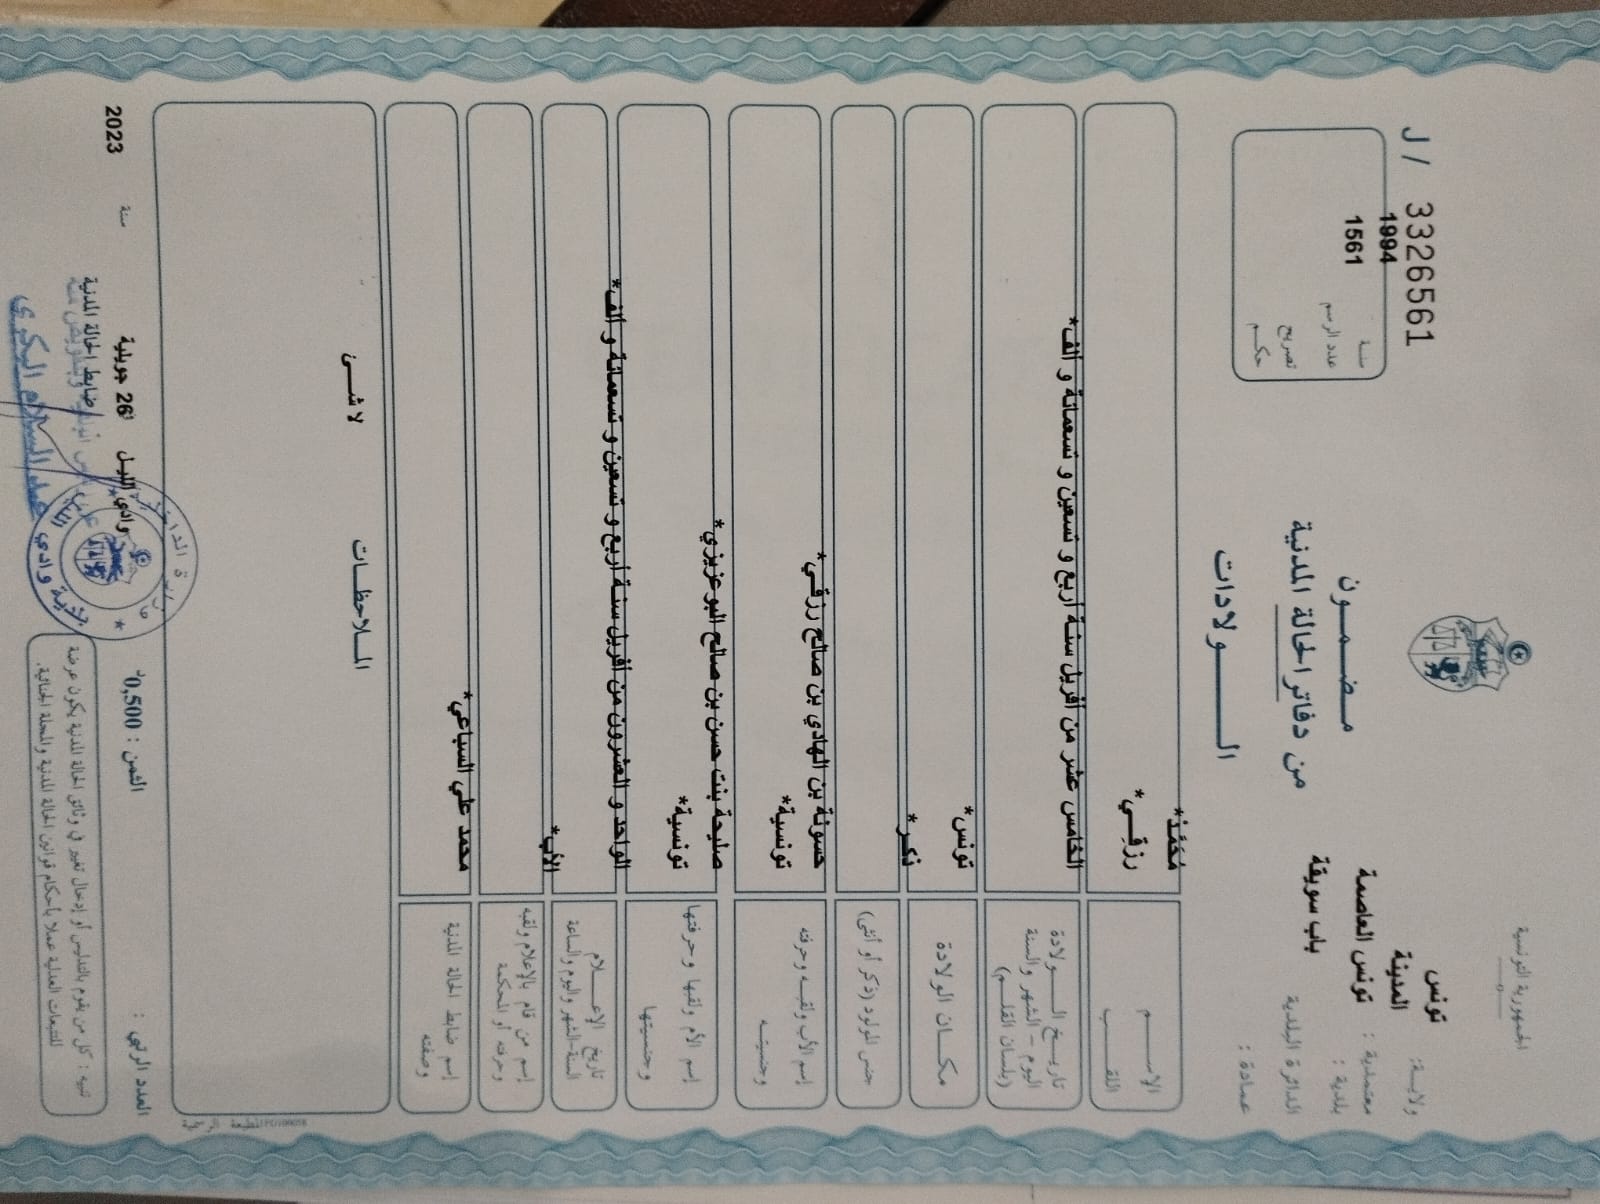 الجمهورية التونسية
ولاية: تونس
معتمدية : المدينة
بلدية : تونس العاصمة
الدائرة البلدية باب سويقة
عمادة :
مضمـــون
من دفاتر الحالة المدنية
الـــــولادات
J / 3326561
سنة 1994
عدد الرسم 1561
تصريح
حكم
الاســـم
اللقـــب
مُحَمَّد*
رزقي*
تاريـخ الــولادة
اليوم - الشهر والسنة
(بلسان القلـم)
الخامس عشر من أفريل سنة أربع و تسعين و تسعمائة و ألف*
مكـان الولادة
تونس*
جنس المولود (ذكر أو أنثى)
ذكر*
إسم الأب ولقبه وحرفته
وجنسيتـــه
حسونة بن الهادي بن صالح رزقي*
تونسية*
إسم الأم ولقبها وحرفتها
وجنسيتها
صليحة بنت حسن بن صالح البوعزيزي*
تونسية*
تاريخ الإعـــلام
السنة-الشهر واليوم والساعة
الواحد و العشرون من أفريل سنة أربع و تسعين و تسعمائة و ألف*
إسم من قام بالإعلام ولقبه
وحرفته أو المحكمة
الأب*
إسم ضابط الحالة المدنية
وصفته
محمد علي السباعي*
المـلاحظـات
لا شـــئ
العدد الرتبي :
الثمن : 0,500د
وادي الليل في 26 جويلية سنة 2023
ضابط الحالة المدنية
عبد السلام البكوري
تنبيه : كل من يقوم بالتدليس أو إدخال تغيير في وثائق الحالة المدنية يكون عرضة
للتتبعات العدلية عملا بأحكام قوانين الحالة المدنية والمجلة الجنائية.
المطبعة الرسمية